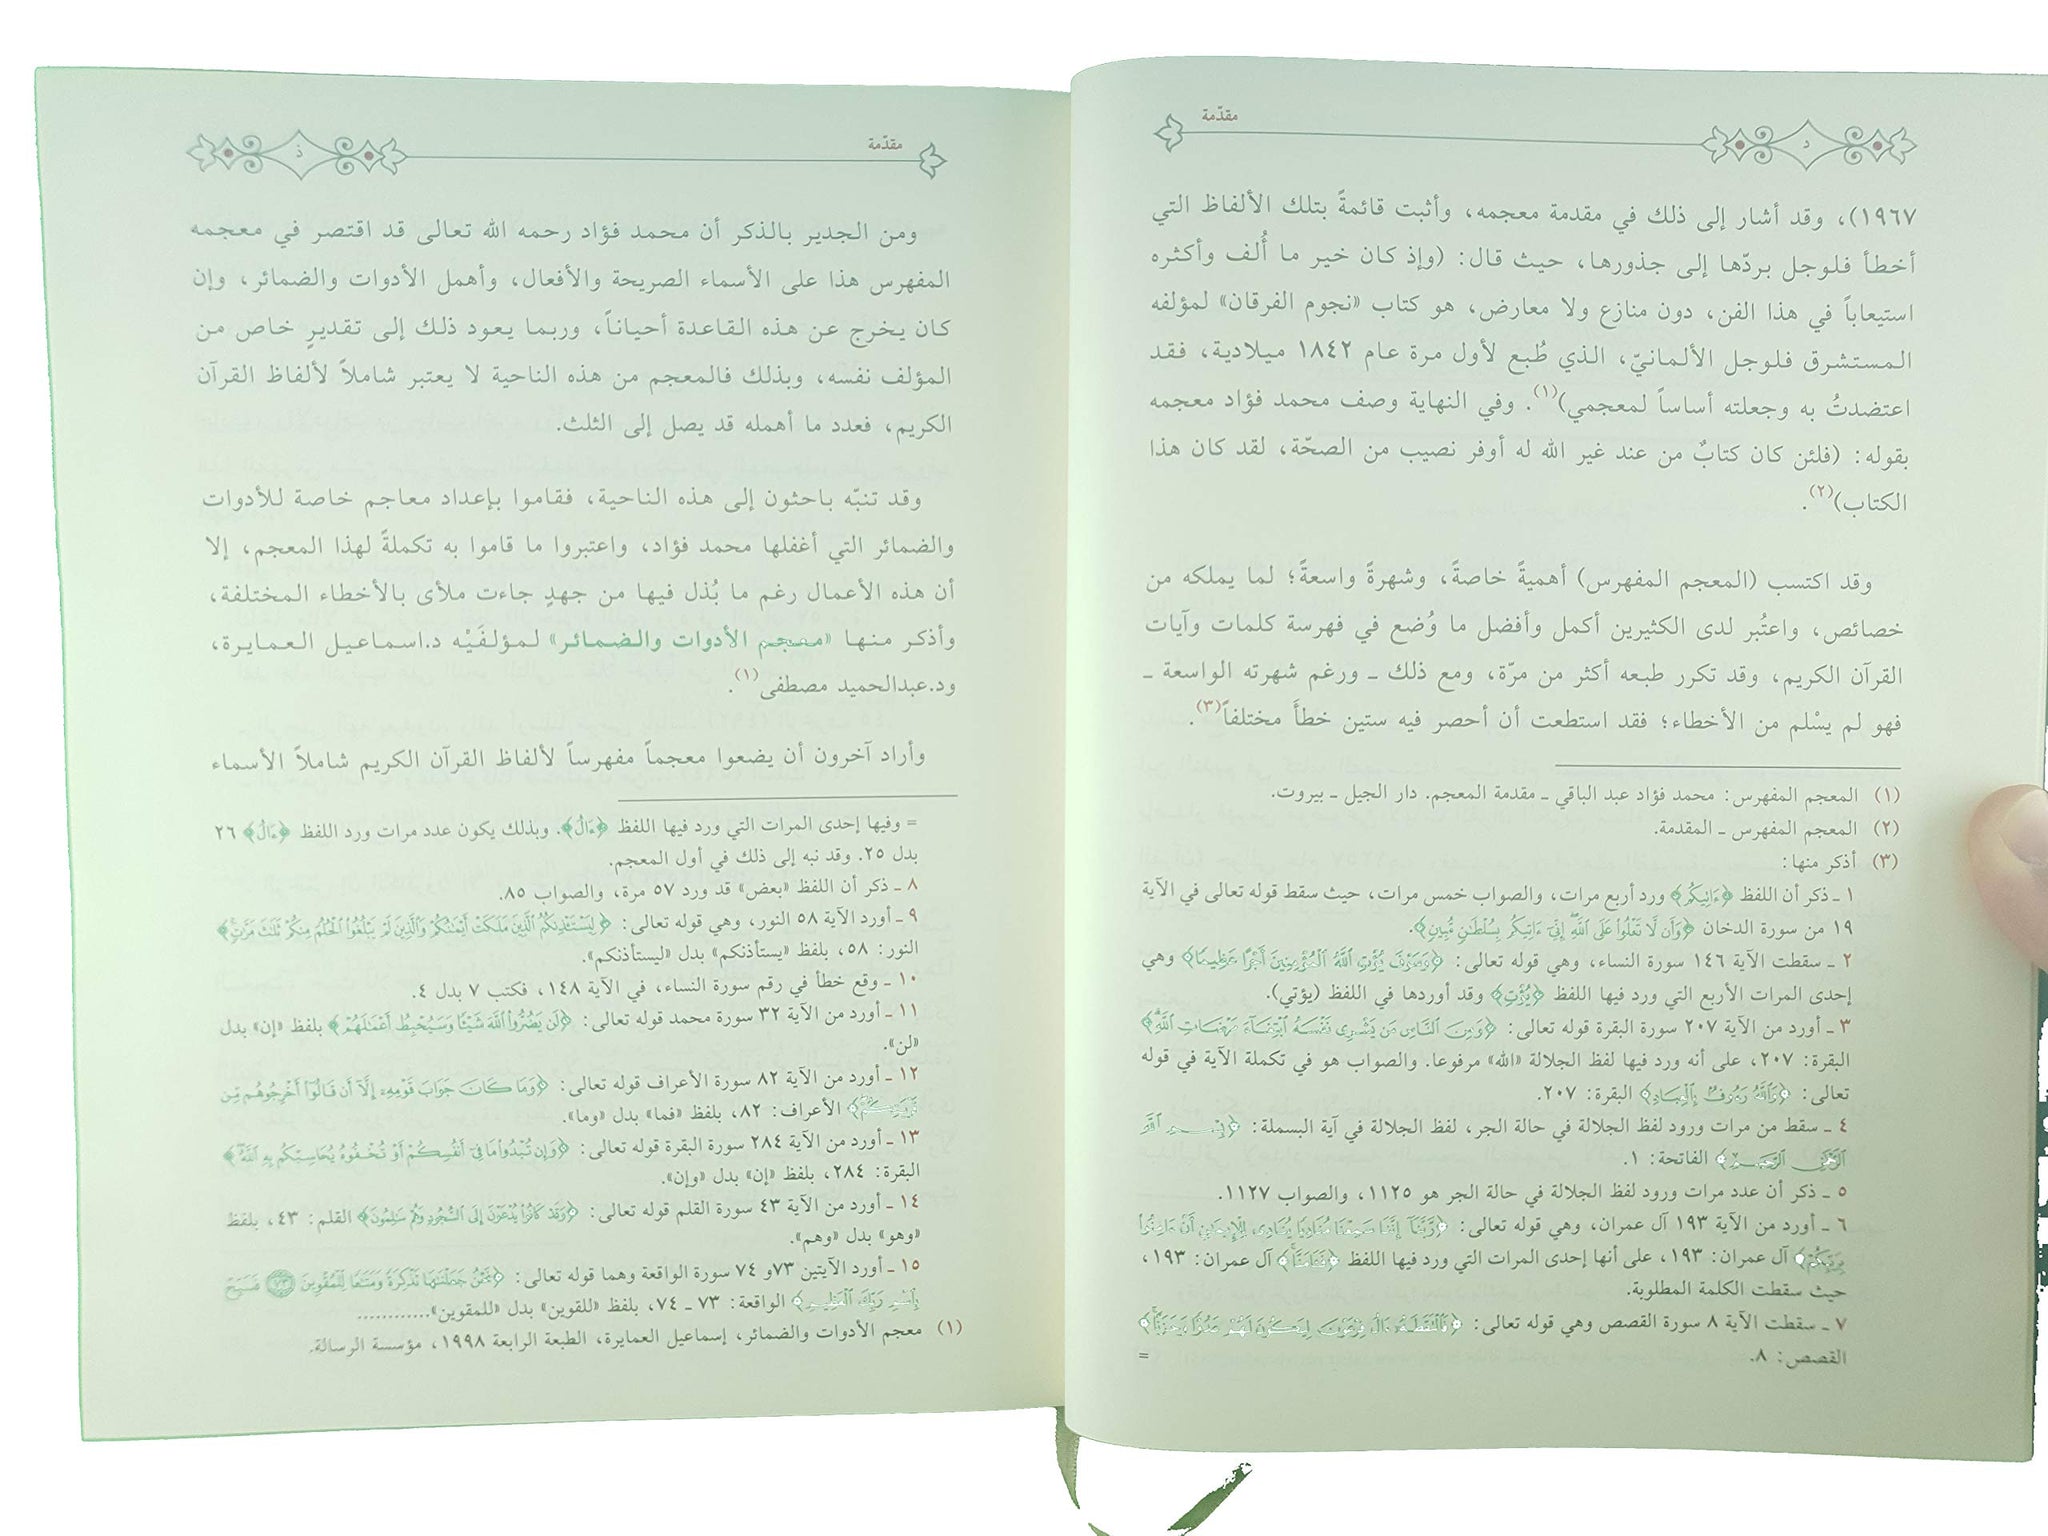 مقدّمة
د
١٩٦٧)، وقد أشار إلى ذلك في مقدمة معجمه، وأثبت قائمةً بتلك الألفاظ التي
أخطأ فلوجل بردّها إلى جذورها، حيث قال: (وإذ كان خير ما أُلف وأكثره
استيعاباً في هذا الفن، دون منازع ولا معارض، هو كتاب «نجوم الفرقان» لمؤلفه
المستشرق فلوجل الألمانيّ، الذي طُبع لأول مرة عام ١٨٤٢ ميلادية، فقد
اعتضدتُ به وجعلته أساساً لمعجمي)(١). وفي النهاية وصف محمد فؤاد معجمه
بقوله: (فلئن كان كتابٌ من عند غير الله له أوفر نصيب من الصحّة، لقد كان هذا
الكتاب)(٢).
وقد اكتسب (المعجم المفهرس) أهميةً خاصةً، وشهرةً واسعةً؛ لما يملكه من
خصائص، واعتُبر لدى الكثيرين أكمل وأفضل ما وُضع في فهرسة كلمات وآيات
القرآن الكريم، وقد تكرر طبعه أكثر من مرّة، ومع ذلك ـ ورغم شهرته الواسعة ـ
فهو لم يسْلم من الأخطاء؛ فقد استطعت أن أحصر فيه ستين خطأً مختلفاً(٣).
(١) المعجم المفهرس: محمد فؤاد عبد الباقي ـ مقدمة المعجم. دار الجيل ـ بيروت.
(٢) المعجم المفهرس ـ المقدمة.
(٣) أذكر منها:
١ ـ ذكر أن اللفظ ﴿ءَاتِيكُم﴾ ورد أربع مرات، والصواب خمس مرات، حيث سقط قوله تعالى في الآية
١٩ من سورة الدخان ﴿وَأَن لَّا تَعْلُوا۟ عَلَى ٱللَّهِ إِنِّىٓ ءَاتِيكُم بِسُلْطَٰنٍ مُّبِينٍ﴾.
٢ ـ سقطت الآية ١٤٦ سورة النساء، وهي قوله تعالى: ﴿وَسَوْفَ يُؤْتِ ٱللَّهُ ٱلْمُؤْمِنِينَ أَجْرًا عَظِيمًا﴾ وهي
إحدى المرات الأربع التي ورد فيها اللفظ ﴿يُؤْتِ﴾ وقد أوردها في اللفظ (يؤتي).
٣ ـ أورد من الآية ٢٠٧ سورة البقرة قوله تعالى: ﴿وَمِنَ ٱلنَّاسِ مَن يَشْرِى نَفْسَهُ ٱبْتِغَآءَ مَرْضَاتِ ٱللَّهِ﴾
البقرة: ٢٠٧، على أنه ورد فيها لفظ الجلالة «الله» مرفوعا. والصواب هو في تكملة الآية في قوله
تعالى: ﴿وَٱللَّهُ رَءُوفٌۢ بِٱلْعِبَادِ﴾ البقرة: ٢٠٧.
٤ ـ سقط من مرات ورود لفظ الجلالة في حالة الجر، لفظ الجلالة في آية البسملة: ﴿بِسْمِ ٱللَّهِ
ٱلرَّحْمَٰنِ ٱلرَّحِيمِ﴾ الفاتحة: ١.
٥ ـ ذكر أن عدد مرات ورود لفظ الجلالة في حالة الجر هو ١١٢٥، والصواب ١١٢٧.
٦ ـ أورد من الآية ١٩٣ آل عمران، وهي قوله تعالى: ﴿رَّبَّنَآ إِنَّنَا سَمِعْنَا مُنَادِيًا يُنَادِى لِلْإِيمَٰنِ أَنْ ءَامِنُوا۟
بِرَبِّكُمْ﴾ آل عمران: ١٩٣، على أنها إحدى المرات التي ورد فيها اللفظ ﴿فَـَٔامَنَّا﴾ آل عمران: ١٩٣،
حيث سقطت الكلمة المطلوبة.
٧ ـ سقطت الآية ٨ سورة القصص وهي قوله تعالى: ﴿فَٱلْتَقَطَهُۥٓ ءَالُ فِرْعَوْنَ لِيَكُونَ لَهُمْ عَدُوًّا وَحَزَنًا﴾
القصص: ٨. =
مقدّمة
ذ
ومن الجدير بالذكر أن محمد فؤاد رحمه الله تعالى قد اقتصر في معجمه
المفهرس هذا على الأسماء الصريحة والأفعال، وأهمل الأدوات والضمائر، وإن
كان يخرج عن هذه القاعدة أحياناً، وربما يعود ذلك إلى تقديرٍ خاص من
المؤلف نفسه، وبذلك فالمعجم من هذه الناحية لا يعتبر شاملاً لألفاظ القرآن
الكريم، فعدد ما أهمله قد يصل إلى الثلث.
وقد تنبّه باحثون إلى هذه الناحية، فقاموا بإعداد معاجم خاصة للأدوات
والضمائر التي أغفلها محمد فؤاد، واعتبروا ما قاموا به تكملةً لهذا المعجم، إلا
أن هذه الأعمال رغم ما بُذل فيها من جهدٍ جاءت ملأى بالأخطاء المختلفة،
وأذكر منها «معجم الأدوات والضمائر» لمؤلفَيْه د.اسماعيل العمايرة،
ود.عبدالحميد مصطفى(١).
وأراد آخرون أن يضعوا معجماً مفهرساً لألفاظ القرآن الكريم شاملاً الأسماء
= وفيها إحدى المرات التي ورد فيها اللفظ ﴿ءَالُ﴾. وبذلك يكون عدد مرات ورد اللفظ ﴿ءَالُ﴾ ٢٦
بدل ٢٥. وقد نبه إلى ذلك في أول المعجم.
٨ ـ ذكر أن اللفظ «بعض» قد ورد ٥٧ مرة، والصواب ٨٥.
٩ ـ أورد الآية ٥٨ النور، وهي قوله تعالى: ﴿لِيَسْتَـْٔذِنكُمُ ٱلَّذِينَ مَلَكَتْ أَيْمَٰنُكُمْ وَٱلَّذِينَ لَمْ يَبْلُغُوا۟ ٱلْحُلُمَ مِنكُمْ ثَلَٰثَ مَرَّٰتٍ﴾
النور: ٥٨، بلفظ «يستأذنكم» بدل «ليستأذنكم».
١٠ ـ وقع خطأ في رقم سورة النساء، في الآية ١٤٨، فكتب ٧ بدل ٤.
١١ ـ أورد من الآية ٣٢ سورة محمد قوله تعالى: ﴿لَن يَضُرُّوا۟ ٱللَّهَ شَيْـًٔا وَسَيُحْبِطُ أَعْمَٰلَهُمْ﴾ بلفظ «إن» بدل
«لن».
١٢ ـ أورد من الآية ٨٢ سورة الأعراف قوله تعالى: ﴿وَمَا كَانَ جَوَابَ قَوْمِهِۦٓ إِلَّآ أَن قَالُوٓا۟ أَخْرِجُوهُم مِّن
قَرْيَتِكُمْ﴾ الأعراف: ٨٢، بلفظ «فما» بدل «وما».
١٣ ـ أورد من الآية ٢٨٤ سورة البقرة قوله تعالى: ﴿وَإِن تُبْدُوا۟ مَا فِىٓ أَنفُسِكُمْ أَوْ تُخْفُوهُ يُحَاسِبْكُم بِهِ ٱللَّهُ﴾
البقرة: ٢٨٤، بلفظ «إن» بدل «وإن».
١٤ ـ أورد من الآية ٤٣ سورة القلم قوله تعالى: ﴿وَقَدْ كَانُوا۟ يُدْعَوْنَ إِلَى ٱلسُّجُودِ وَهُمْ سَٰلِمُونَ﴾ القلم: ٤٣، بلفظ
«وهو» بدل «وهم».
١٥ ـ أورد الآيتين ٧٣و ٧٤ سورة الواقعة وهما قوله تعالى: ﴿نَحْنُ جَعَلْنَٰهَا تَذْكِرَةً وَمَتَٰعًا لِّلْمُقْوِينَ ٧٣ فَسَبِّحْ
بِٱسْمِ رَبِّكَ ٱلْعَظِيمِ﴾ الواقعة: ٧٣ ـ ٧٤، بلفظ «للقوين» بدل «للمقوين»............
(١) معجم الأدوات والضمائر، إسماعيل العمايرة، الطبعة الرابعة ١٩٩٨، مؤسسة الرسالة.